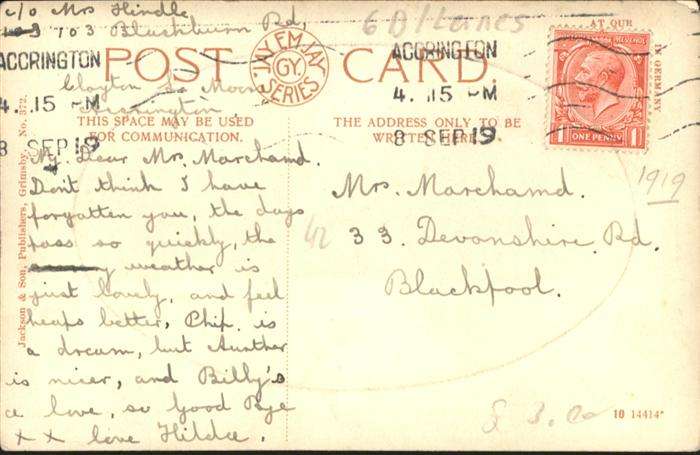 c/o Mrs Hindle
703 Blackburn Rd,
Clayton Le Moors
Accrington
6 B/Lancs
POST CARD.
JAY EM JAY
GY.
SERIES
ACCRINGTON
4. 15 PM
8 SEP 19
ACCRINGTON
4. 15 PM
8 SEP 19
AT OUR
IN GERMANY
ONE PENNY
1 1
THIS SPACE MAY BE USED
FOR COMMUNICATION.
THE ADDRESS ONLY TO BE
WRITTEN HERE.
My Dear Mrs. Marchamd.
Dont think I have
forgotten you, the days
pass so quickly, the
weather is
just lovely, and feel
heaps better, Phip. is
a dream, but Aunther
is nicer, and Billy's
a love, so Good Bye
x x love Hilda.
Mrs. Marchamd.
33. Devonshire. Rd.
Blackpool.
1919
42
Jackson & Son, Publishers, Grimsby. No. 372.
10 14414*